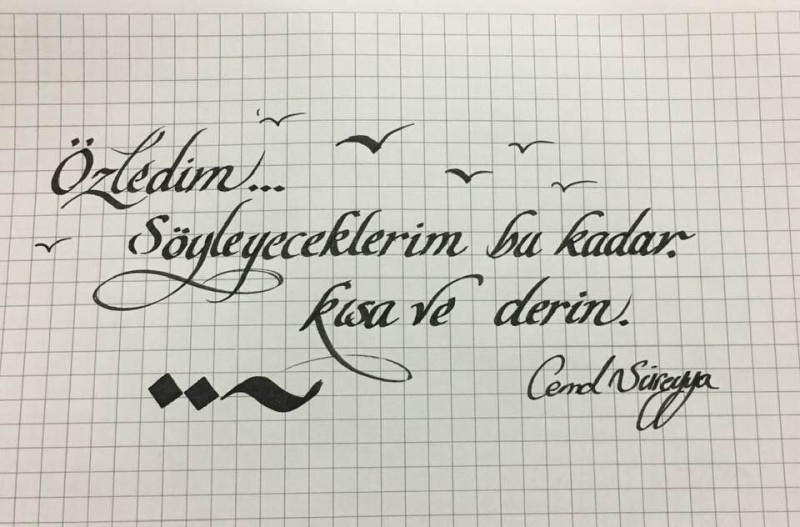 Özledim...
Söyleyeceklerim bu kadar.
kısa ve derin.
Cemal Süreyya